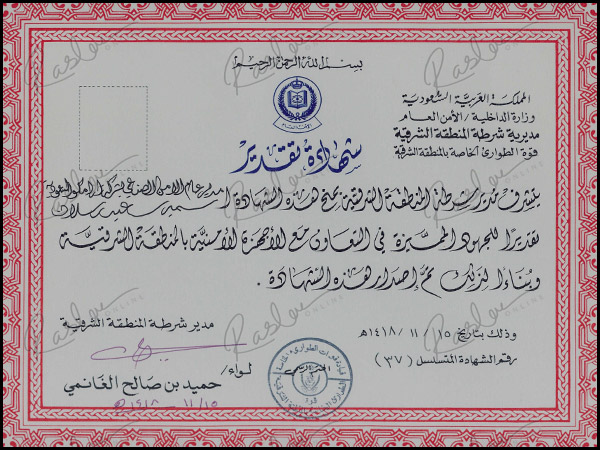 بسم الله الرحمن الرحيم
المملكة العربية السعودية
وزارة الداخلية / الأمن العام
مديرية شرطة المنطقة الشرقية
قوة الطوارئ الخاصة بالمنطقة الشرقية
الأمن العام
شهادة تقدير
يتشرف مدير شرطة المنطقة الشرقية بمنح هذه الشهادة / مدير عام الأمن الصناعي
تقديرًا للجهود المميزة في التعاون مع الأجهزة الأمنية بالمنطقة الشرقية
وبناءًا لذلك تم إصدار هذه الشهادة .
وذلك بتاريخ ١٥ / ١١ / ١٤١٨هـ
رقم الشهادة المتسلسل ( ٣٧ )
مدير شرطة المنطقة الشرقية
لواء /
حميد بن صالح الغانمي
١٤١٨ - ١١/١٥
Raslan
ONLINE